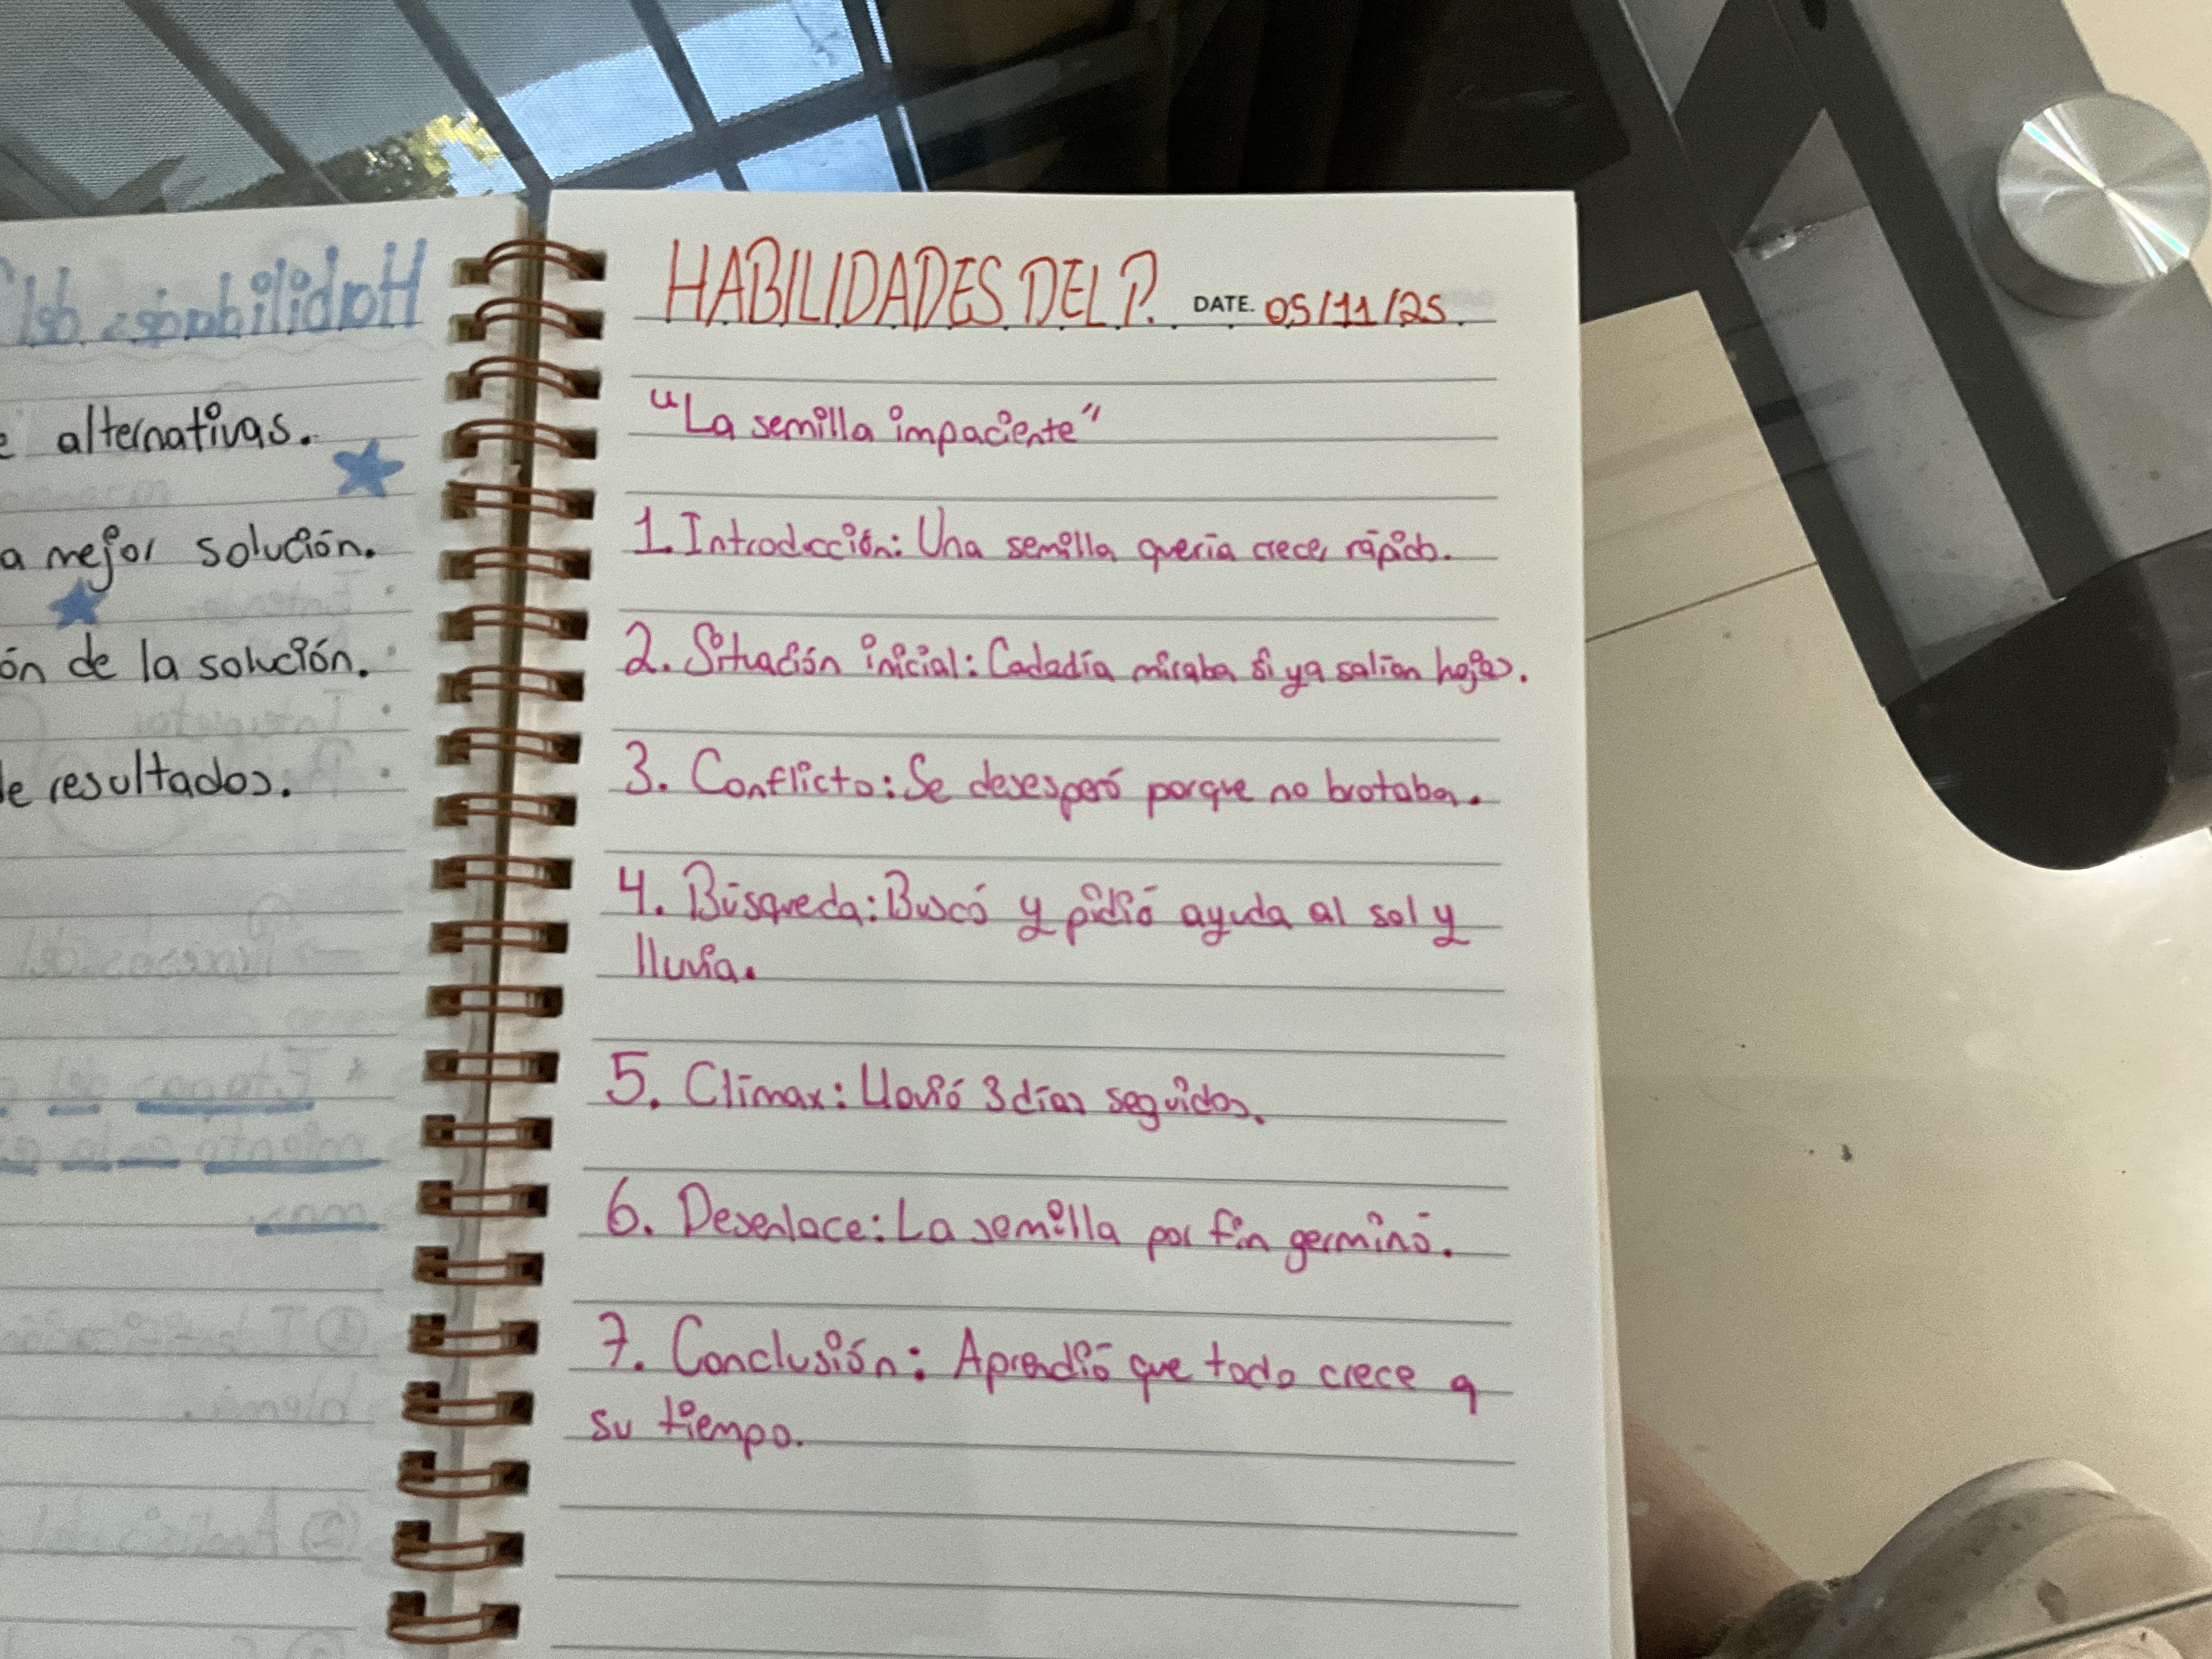 e alternativas.
a mejor solución.
ón de la solución.
de resultados.
HABILIDADES DEL P. DATE. 05/11/25
"La semilla impaciente"
1. Introducción: Una semilla quería crecer rápido.
2. Situación inicial: Cada día miraba si ya salían hojas.
3. Conflicto: Se desesperó porque no brotaba.
4. Búsqueda: Buscó y pidió ayuda al sol y
lluvia.
5. Clímax: Llovió 3 días seguidos.
6. Desenlace: La semilla por fin germinó.
7. Conclusión: Aprendió que todo crece a
su tiempo.